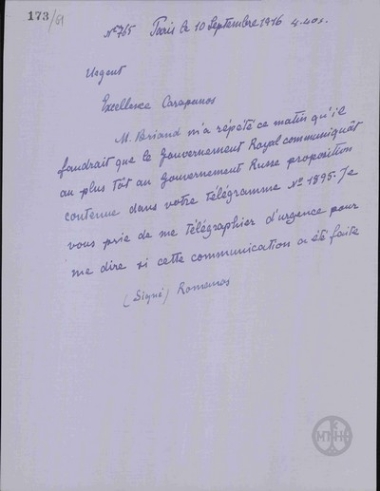 173/61
No 765 Paris le 10 Septembre 1916 4.40s.
Urgent
Excellence Carapanos
M. Briand m'a répété ce matin qu'il
faudrait que le Gouvernement Royal communiquât
au plus tôt au Gouvernement Russe proposition
contenue dans votre télégramme No 1895. Je
vous prie de me télégraphier d'urgence pour
me dire si cette communication a été faite
(Signé) Romanos